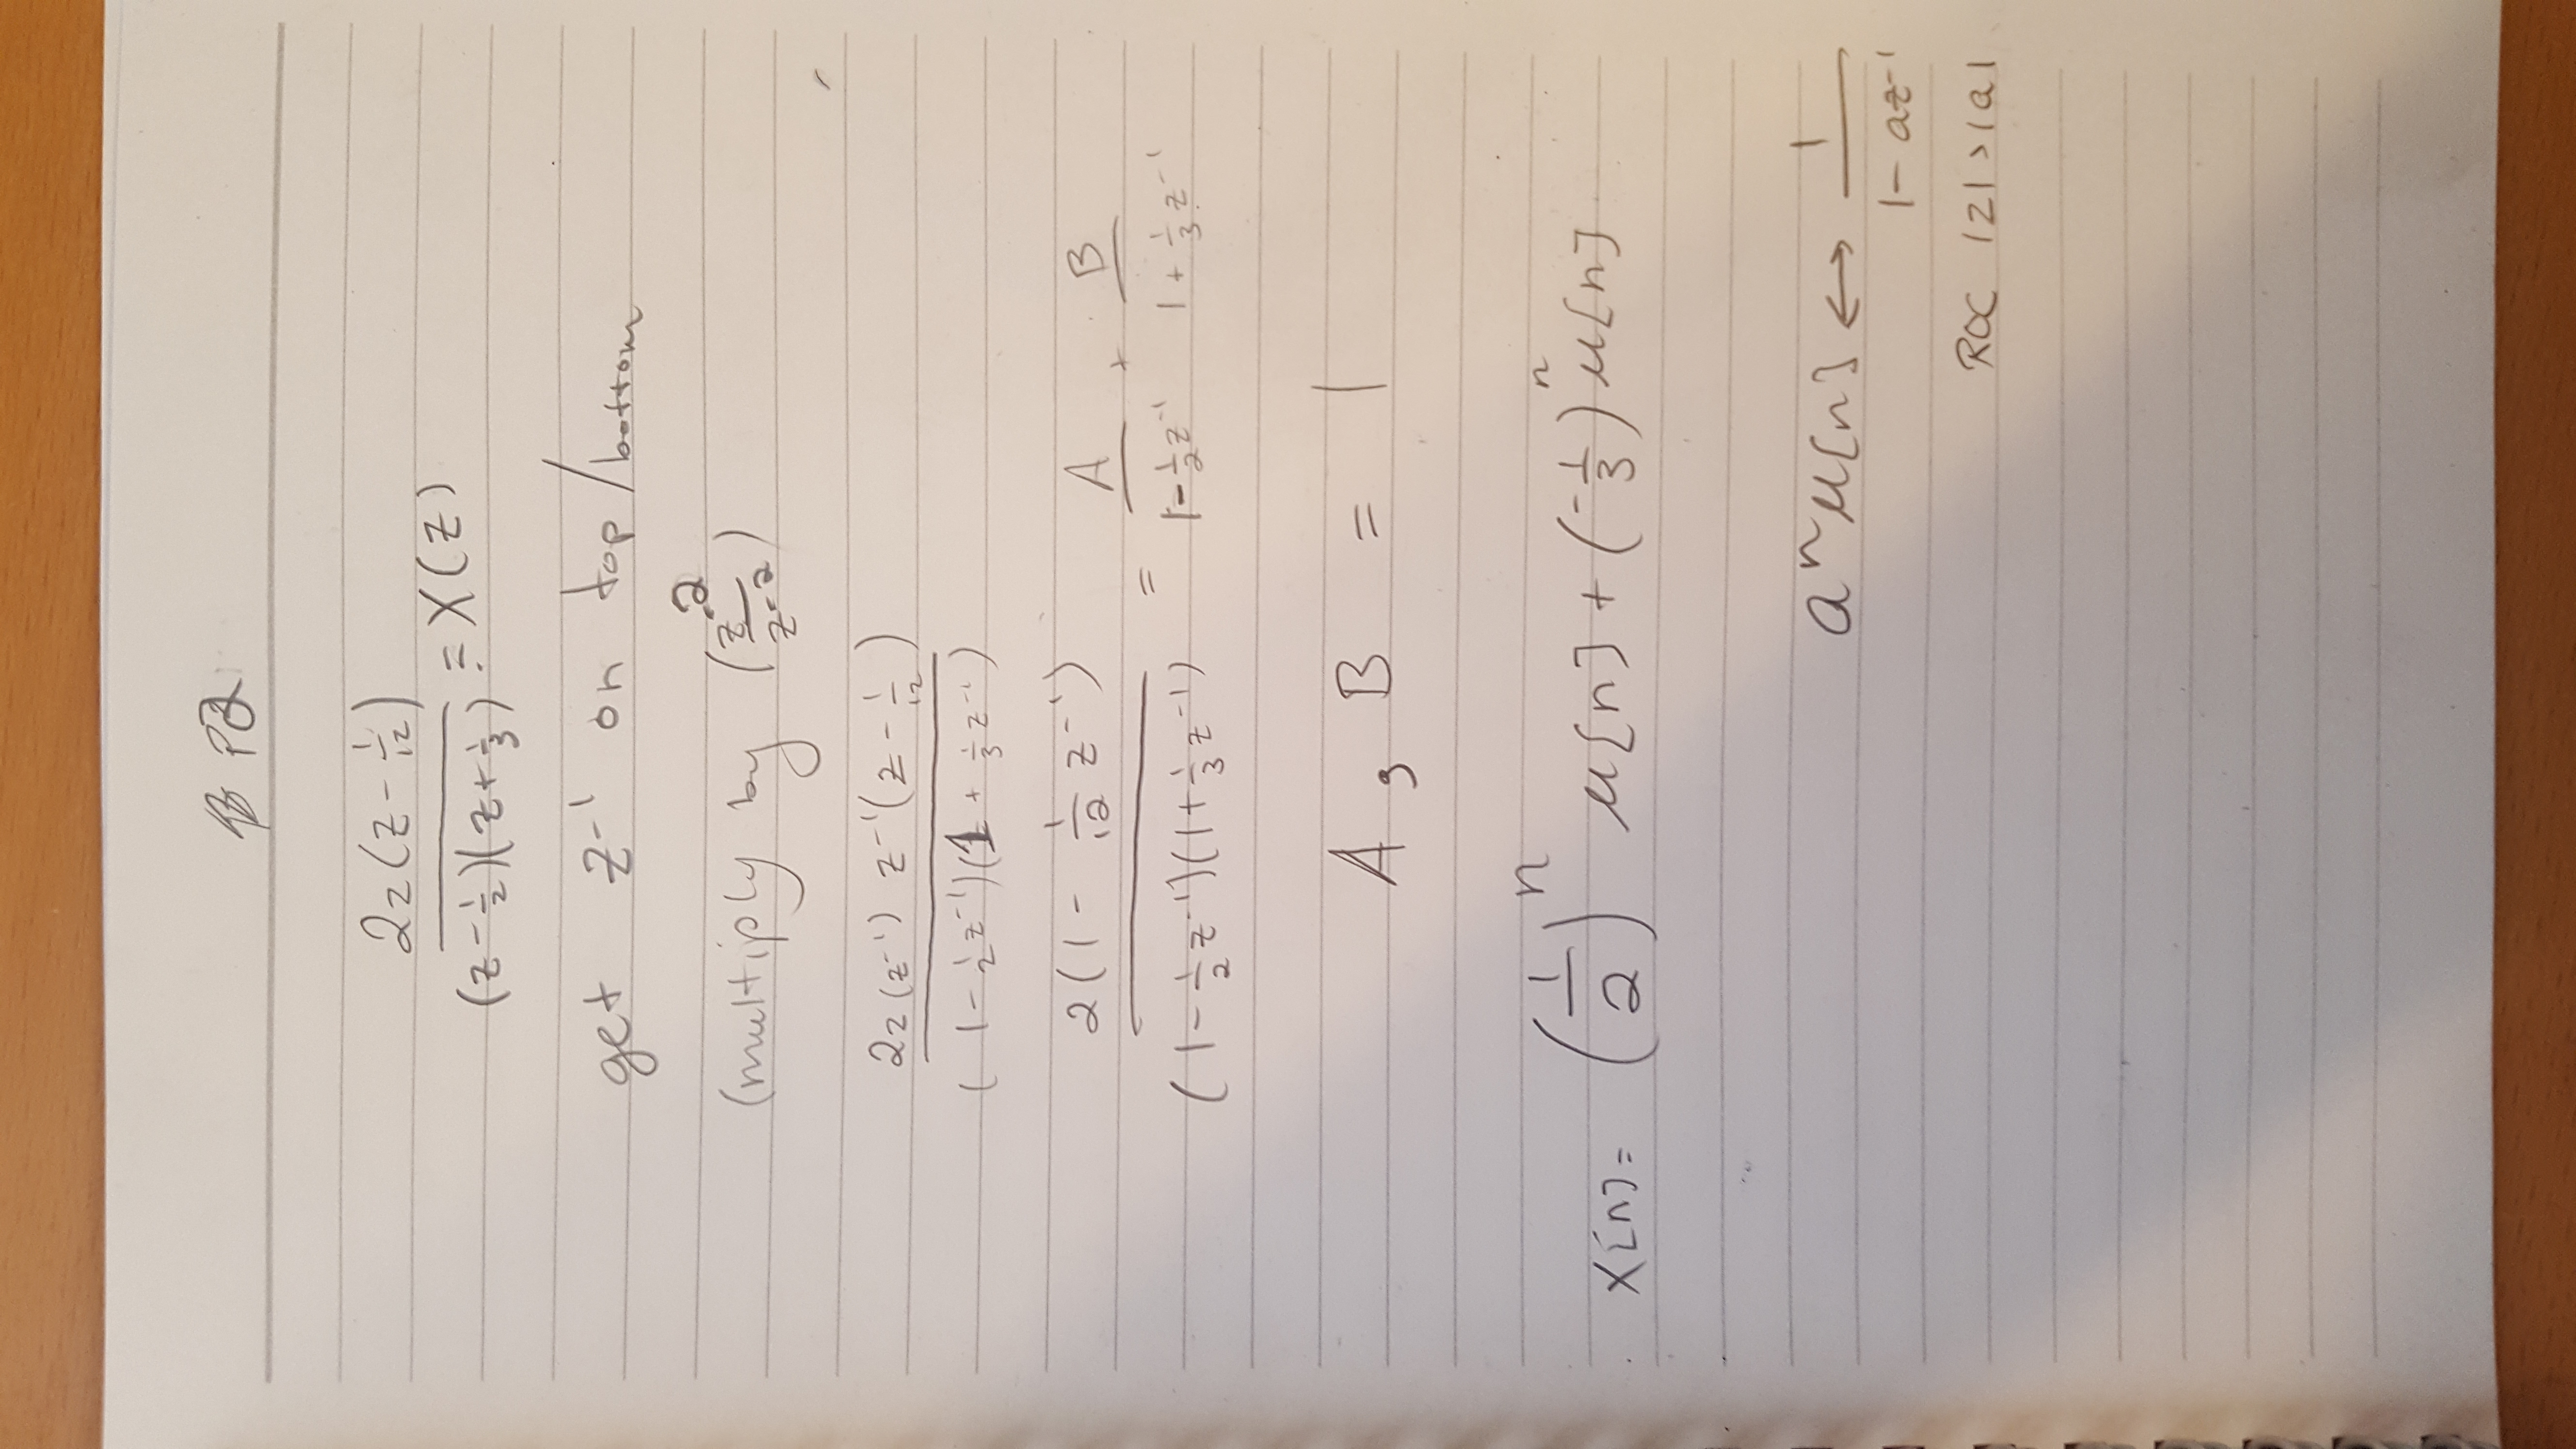 P2
2z(z - 1/12) / (z - 1/2)(z + 1/3) = X(z)
get z⁻¹ on top/bottom
(multiply by (z⁻²/z⁻²)
2z(z⁻¹) z⁻¹(z - 1/12) / (1 - 1/2 z⁻¹)(1 + 1/3 z⁻¹)
2(1 - 1/12 z⁻¹) / (1 - 1/2 z⁻¹)(1 + 1/3 z⁻¹) = A / 1 - 1/2 z⁻¹ + B / 1 + 1/3 z⁻¹
A, B = 1
X[n] = (1/2)ⁿ u[n] + (-1/3)ⁿ u[n]
aⁿu[n] ↔ 1 / 1 - az⁻¹
ROC |z| > |a|